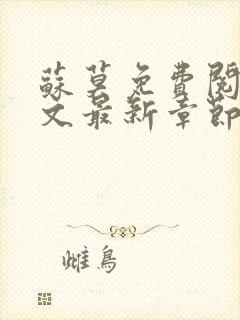 蘇莫免費閱
文最新章節
雌鳥